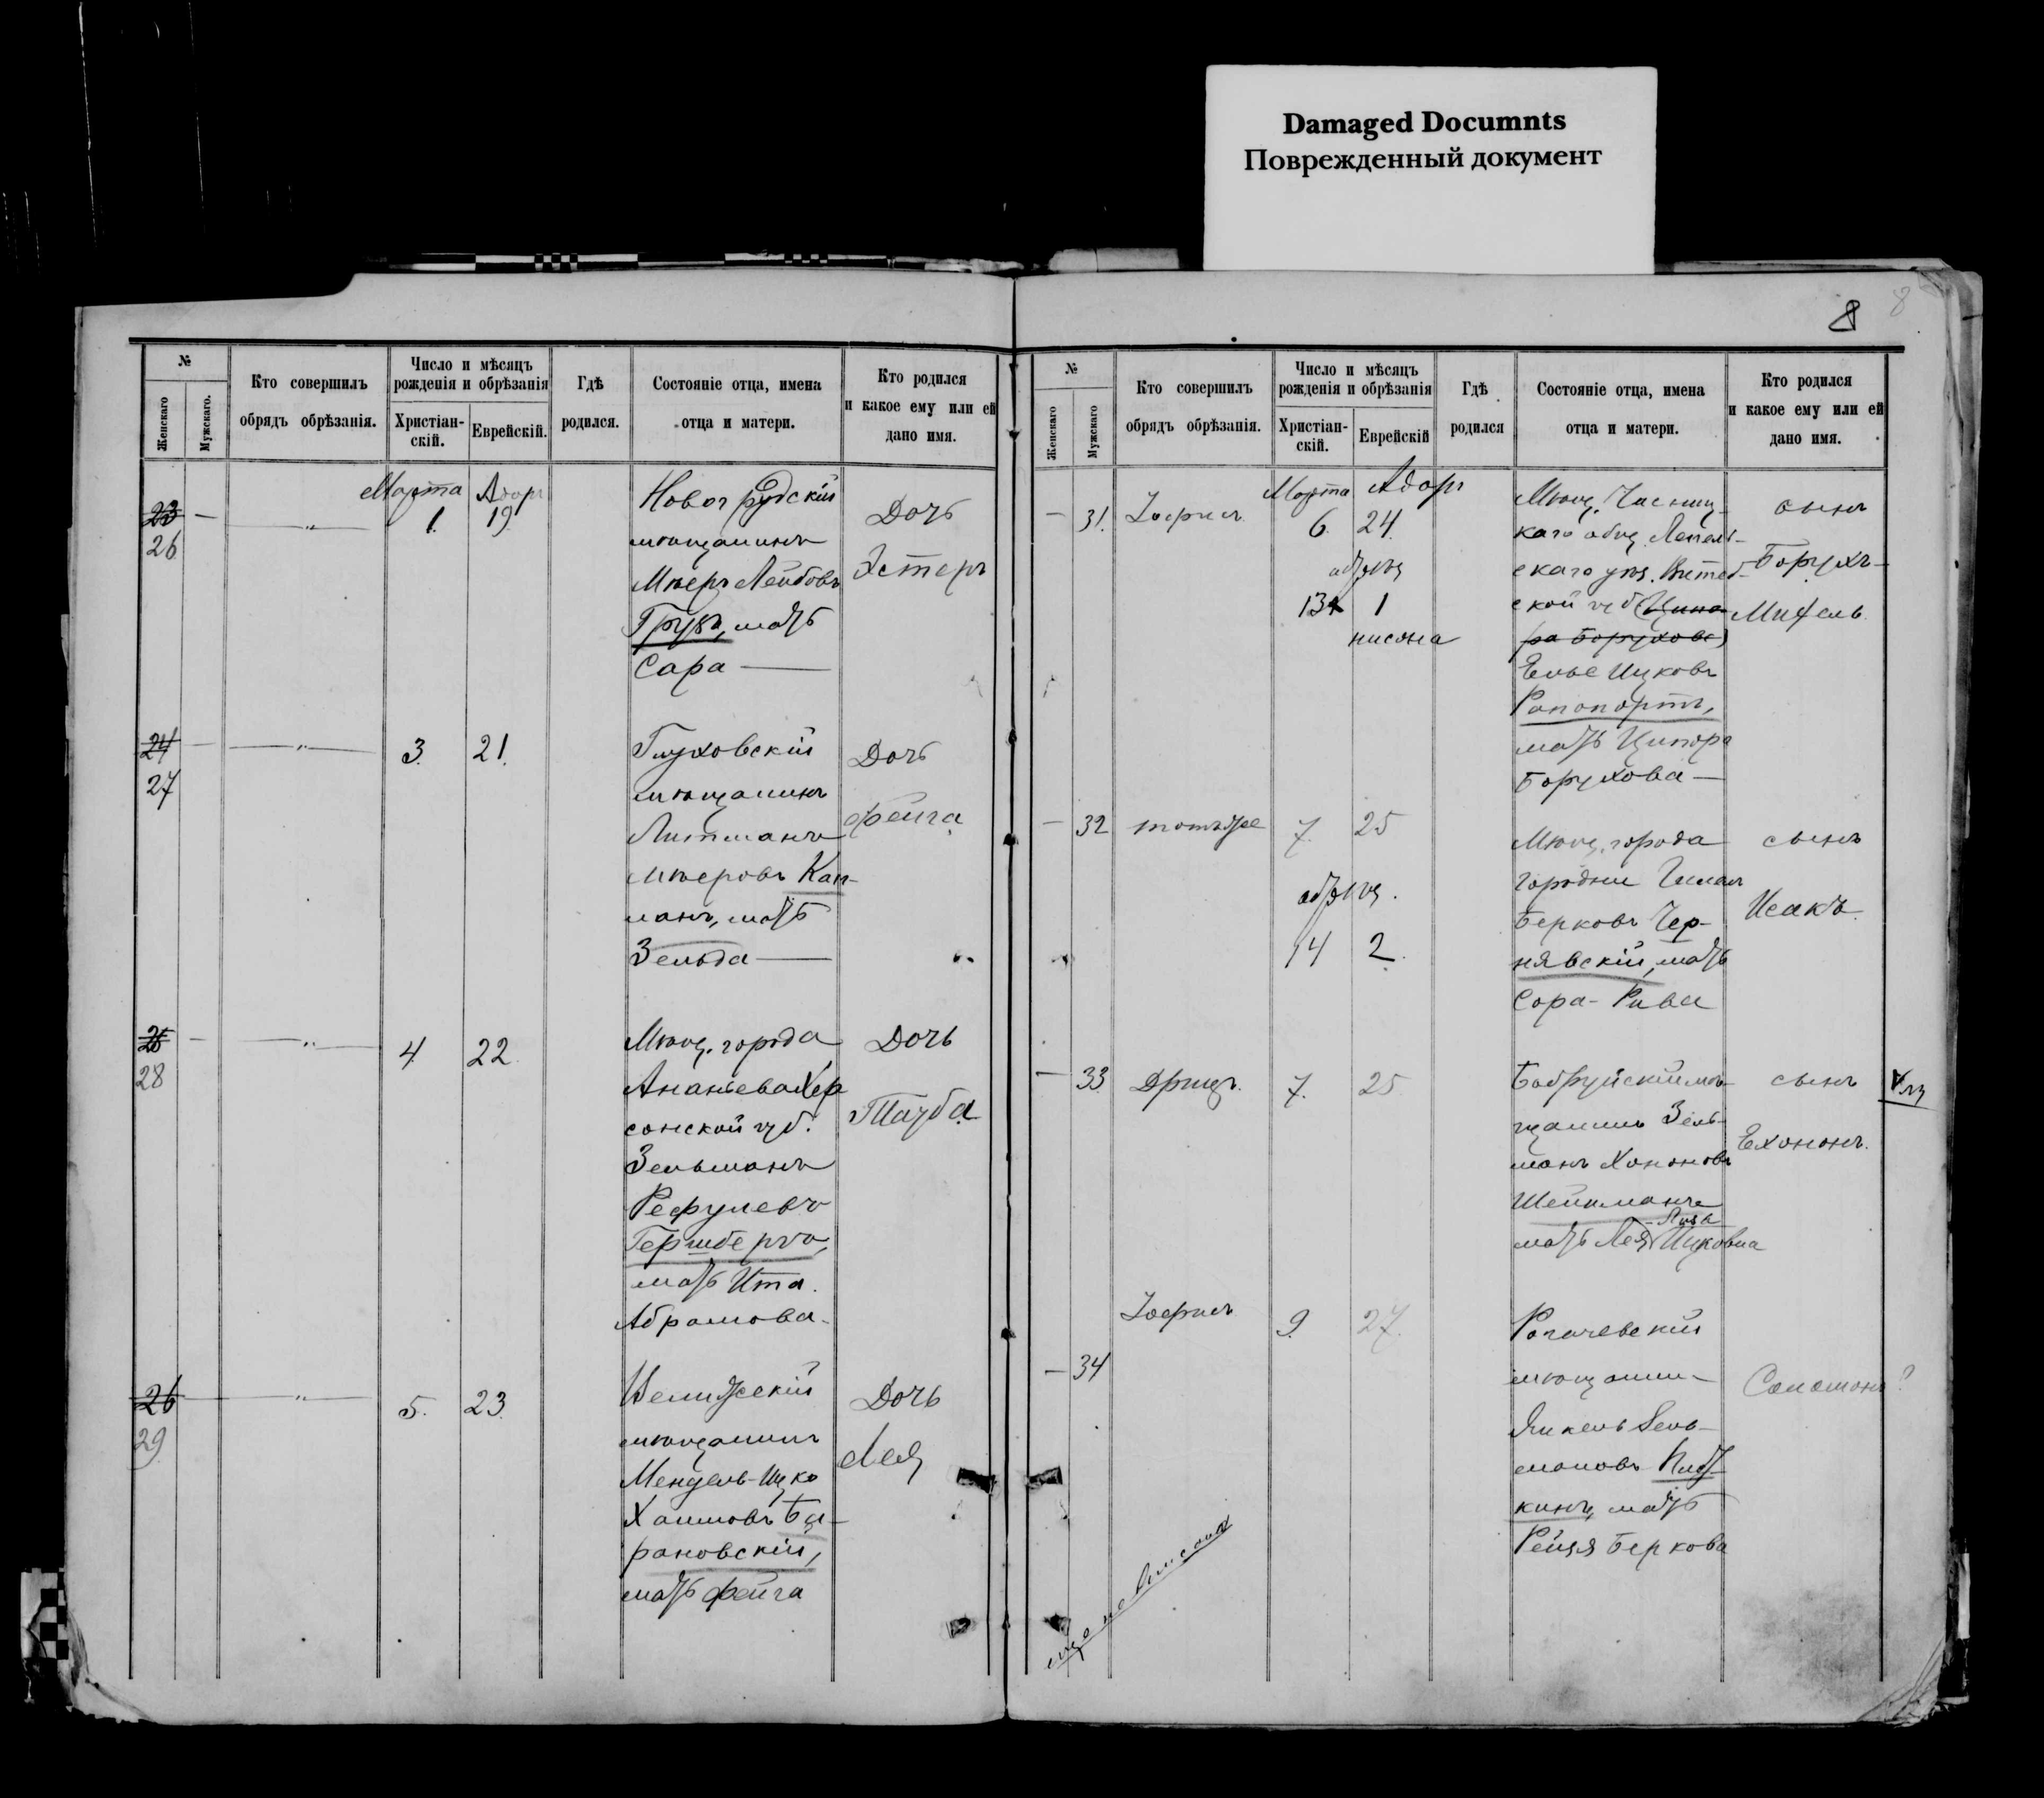 Damaged Documnts
Поврежденный документ
8
8
№
Женскаго
Мужскаго.
Кто совершилъ
обрядъ обрѣзанія.
Число и мѣсяцъ
рожденія и обрѣзанія
Христіан-
скій.
Еврейскій.
Гдѣ
родился.
Состояніе отца, имена
отца и матери.
Кто родился
и какое ему или ей
дано имя.
Марта Адоръ
23 — — „ — 1. 19.
26
Новогрудскій
мѣщанинъ
Мѣеръ Лейбовъ
Грузъ, мать
Сара —
Дочь
Эстеръ
24 — — „ — 3. 21.
27
Глуховскій
мѣщанинъ
Литманъ
Мѣеровъ Кап-
ланъ, мать
Зельда —
Дочь
Фейга
25 — — „ — 4 22.
28
Мѣщ. города
Ананьева Хер
сонской губ.
Зельманъ
Рефулевъ
Гершбергъ,
мать Ита
Абрамова
Дочь
Тауба
26 — — „ — 5. 23.
29
Велижскій
мѣщанинъ
Мендель-Ицко
Хаимовъ Ба-
рановскій,
мать Фейга
Дочь
Лея
№
Женскаго
Мужскаго
Кто совершилъ
обрядъ обрѣзанія.
Число и мѣсяцъ
рожденія и обрѣзанія
Христіан-
скій.
Еврейскій
Гдѣ
родился
Состояніе отца, имена
отца и матери.
Кто родился
и какое ему или ей
дано имя.
Марта Адоръ
— 31. Іофисъ 6. 24.
обрѣз
13 1
нисона
Мѣщ. Часниц-
каго общ. Лепель-
скаго уѣз. Витеб-
ской губ (Ципо-
ра Борухова)
Елье Ицковъ
Рапопортъ,
мать Ципора
Борухова —
сынъ
Борухъ-
Михель
— 32 тотъ же 7. 25
обрѣз.
14 2.
Мѣщ. города
Городни
Берковъ Чер-
нявскій, мать
Сора-Рива
сынъ
Исакъ
— 33 Дрицъ. 7. 25
Бобруйскій мѣ-
щанинъ Зель-
манъ Хононовъ
Шейнманъ
мать Лея Ицковна
сынъ
Ехононъ.
Іофисъ 9. 27.
— 34
Рогачевскій
мѣщанин
Янкель Зель-
мановъ
кинъ, мать
Рейзя Беркова
Соломонъ?
еще не вписанъ